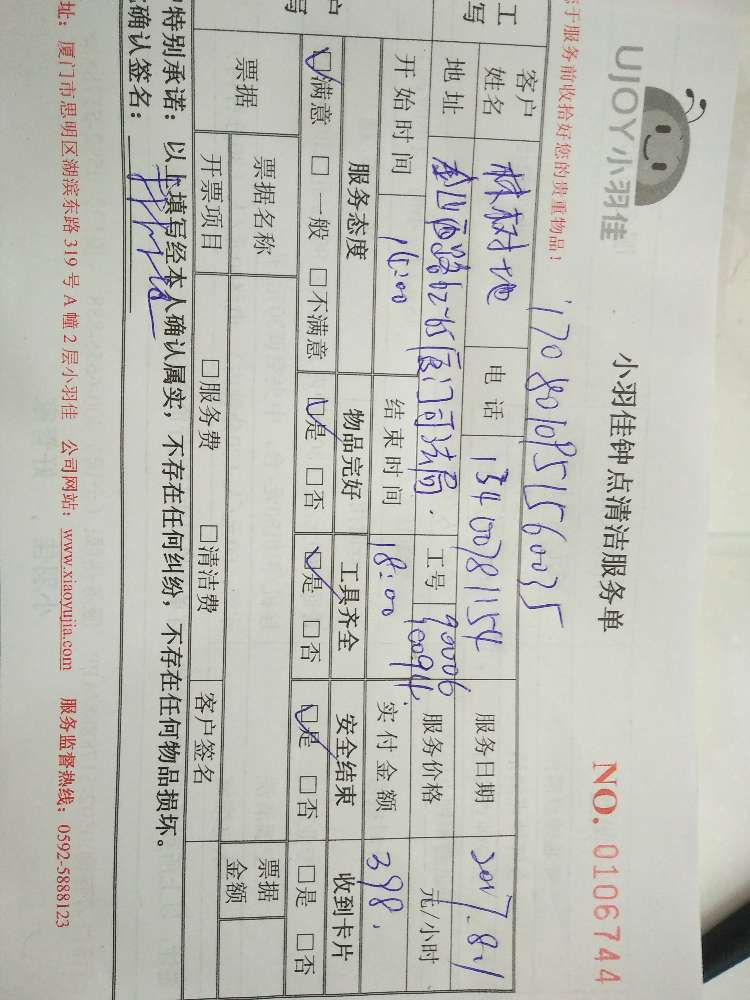 UJOY小羽佳
小羽佳钟点清洁服务单
NO. 0106744
于服务前收拾好您的贵重物品！
1708010951560035
工 客户姓名 林树地 电话 13400781154 服务日期 2017.8.1
写 地址 金山西路62-65厦门司法局. 工号 90006 90094 服务价格 元/小时
开始时间 16:00 结束时间 18:00 实付金额 398.
户 服务态度 物品完好 工具齐全 安全结束 收到卡片
写 ☑满意 □一般 □不满意 ☑是 □否 ☑是 □否 ☑是 □否 □是 □否
票据 票据名称 票据金额
开票项目 □服务费 □清洁费 客户签名
特别承诺：以上填写经本人确认属实，不存在任何纠纷，不存在任何物品损坏。
确认签名：
址：厦门市思明区湖滨东路319号A幢2层小羽佳 公司网站：www.xiaoyujia.com 服务监督热线：0592-5888123